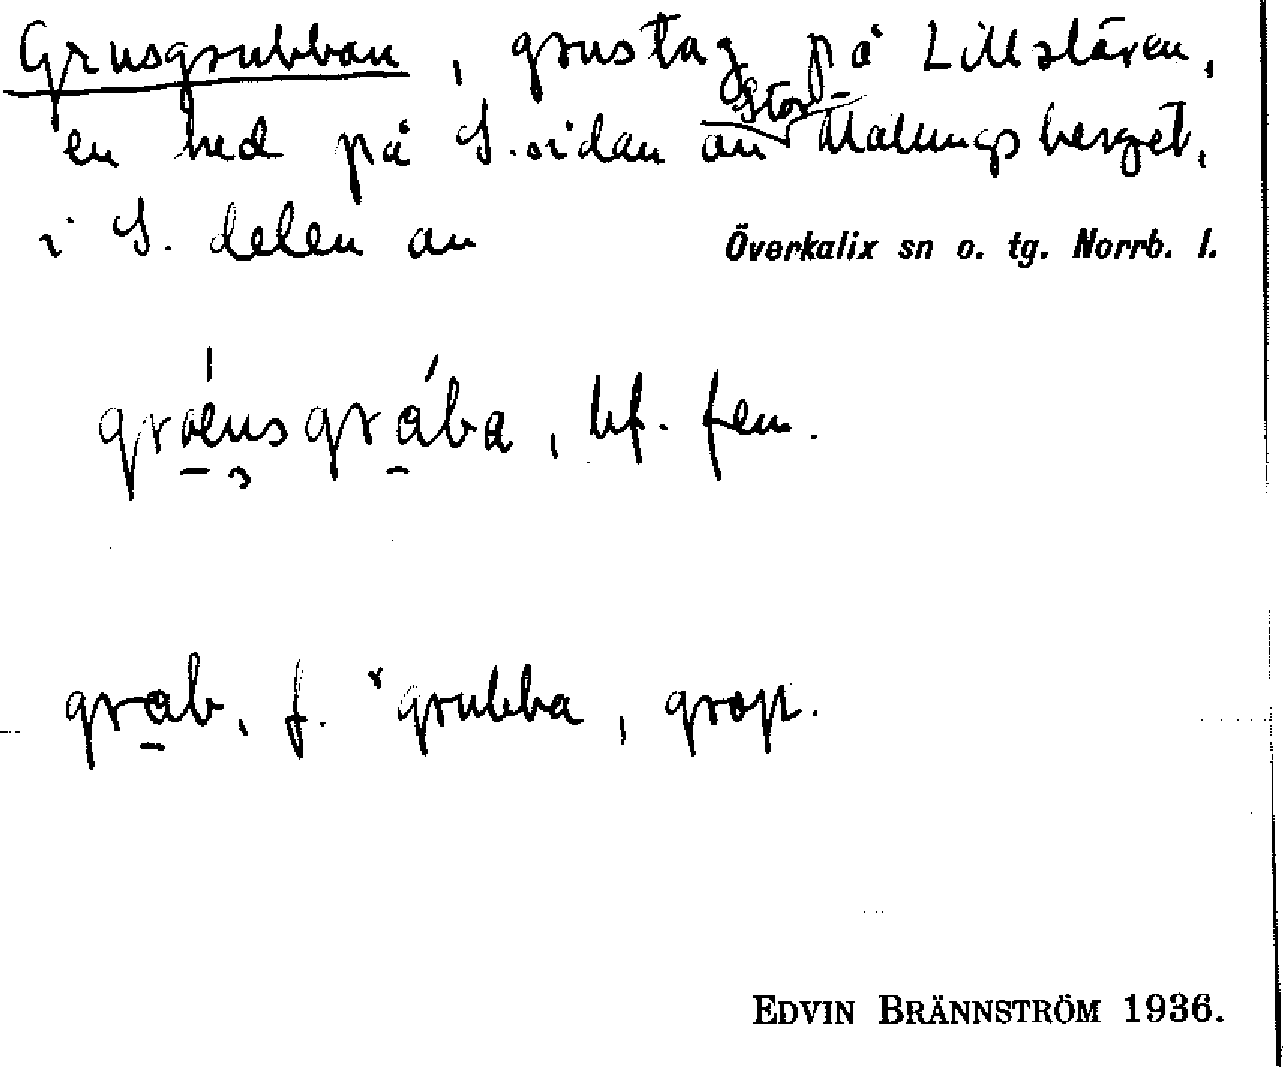 Grusgrubban, grustag på Lillstären,
en hed på S.sidan av Stor Mallungsberget,
i S. delen av Överkalix sn o. tg. Norrb. l.
gráensgrába, bf. fem.
grab, f. grubba, grop.
EDVIN BRÄNNSTRÖM 1936.